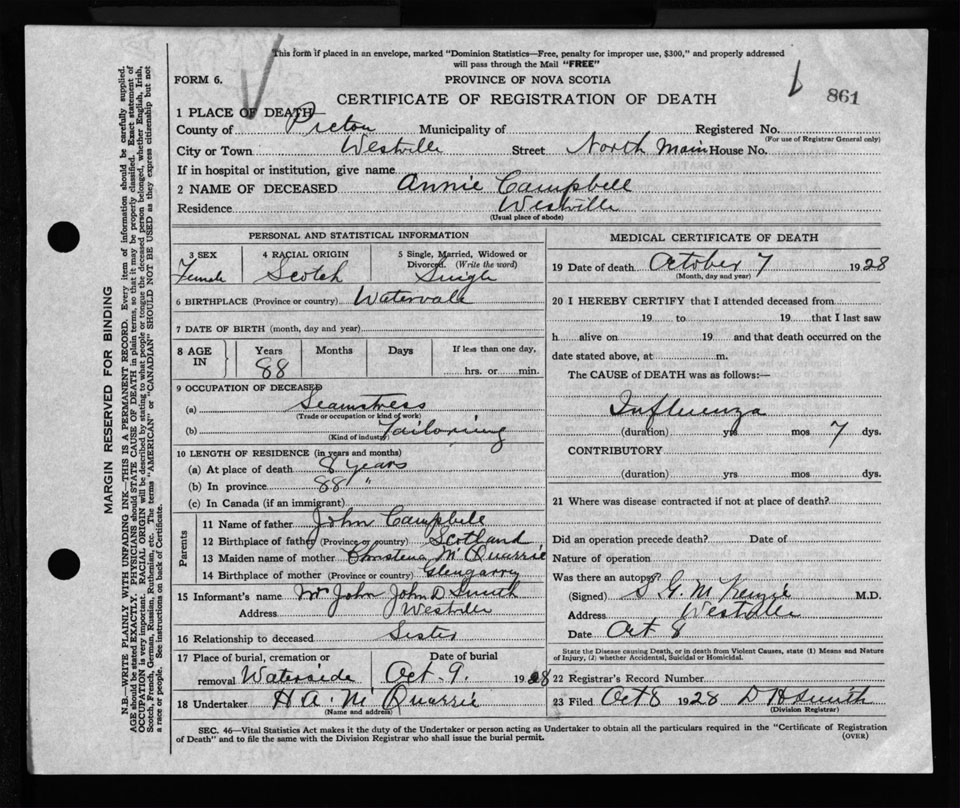 This form if placed in an envelope, marked "Dominion Statistics—Free, penalty for improper use, $300," and properly addressed
will pass through the Mail "FREE"
FORM 6.
PROVINCE OF NOVA SCOTIA
CERTIFICATE OF REGISTRATION OF DEATH
861
1 PLACE OF DEATH
County of Pictou Municipality of Registered No.
(For use of Registrar General only)
City or Town Westville Street North Main House No.
If in hospital or institution, give name
2 NAME OF DECEASED Annie Campbell
Residence Westville
(Usual place of abode)
PERSONAL AND STATISTICAL INFORMATION
3 SEX 4 RACIAL ORIGIN 5 Single, Married, Widowed or
Divorced. (Write the word)
Female Scotch Single
6 BIRTHPLACE (Province or country) Watervale
7 DATE OF BIRTH (month, day and year)
8 AGE IN Years Months Days If less than one day,
88 hrs. or min.
9 OCCUPATION OF DECEASED
(a) Seamstress
(Trade or occupation or kind of work)
(b) Tailoring
(Kind of industry)
10 LENGTH OF RESIDENCE (in years and months)
(a) At place of death 8 years
(b) In province 88 "
(c) In Canada (if an immigrant)
Parents
11 Name of father John Campbell
12 Birthplace of father (Province or country) Scotland
13 Maiden name of mother Christena McQuarrie
14 Birthplace of mother (Province or country) Glengarry
15 Informant's name Mrs John D Smith
Address Westville
16 Relationship to deceased Sister
17 Place of burial, cremation or Date of burial
removal Waterside Oct. 9. 1928
18 Undertaker H A McQuarrie
(Name and address)
MEDICAL CERTIFICATE OF DEATH
19 Date of death October 7 1928
(Month, day and year)
20 I HEREBY CERTIFY that I attended deceased from
19 to 19 that I last saw
h alive on 19 and that death occurred on the
date stated above, at m.
The CAUSE of DEATH was as follows:—
Influenza
(duration) yrs mos 7 dys.
CONTRIBUTORY
(duration) yrs mos dys.
21 Where was disease contracted if not at place of death?
Did an operation precede death? Date of
Nature of operation
Was there an autopsy?
(Signed) S G McKenzie M.D.
Address Westville
Date Oct 8
State the Disease causing Death, or in death from Violent Causes, state (1) Means and Nature
of Injury, (2) whether Accidental, Suicidal or Homicidal.
22 Registrar's Record Number
23 Filed Oct 8 1928 D H Smith
(Division Registrar)
SEC. 46—Vital Statistics Act makes it the duty of the Undertaker or person acting as Undertaker to obtain all the particulars required in the "Certificate of Registration
of Death" and to file the same with the Division Registrar who shall issue the burial permit.
(OVER)
MARGIN RESERVED FOR BINDING
N.B.—WRITE PLAINLY WITH UNFADING INK—THIS IS A PERMANENT RECORD. Every item of information should be carefully supplied.
AGE should be stated EXACTLY. PHYSICIANS should STATE CAUSE OF DEATH in plain terms, so that it may be properly classified. Exact statement of
OCCUPATION is very important. RACIAL ORIGIN will be described by stating to what people or tongue the deceased person belonged, whether English, Irish,
Scotch, French, German, Russian, Ruthenian, etc. The terms "AMERICAN" or "CANADIAN" SHOULD NOT BE USED as they express citizenship but not
a race or people. See instructions on back of Certificate.